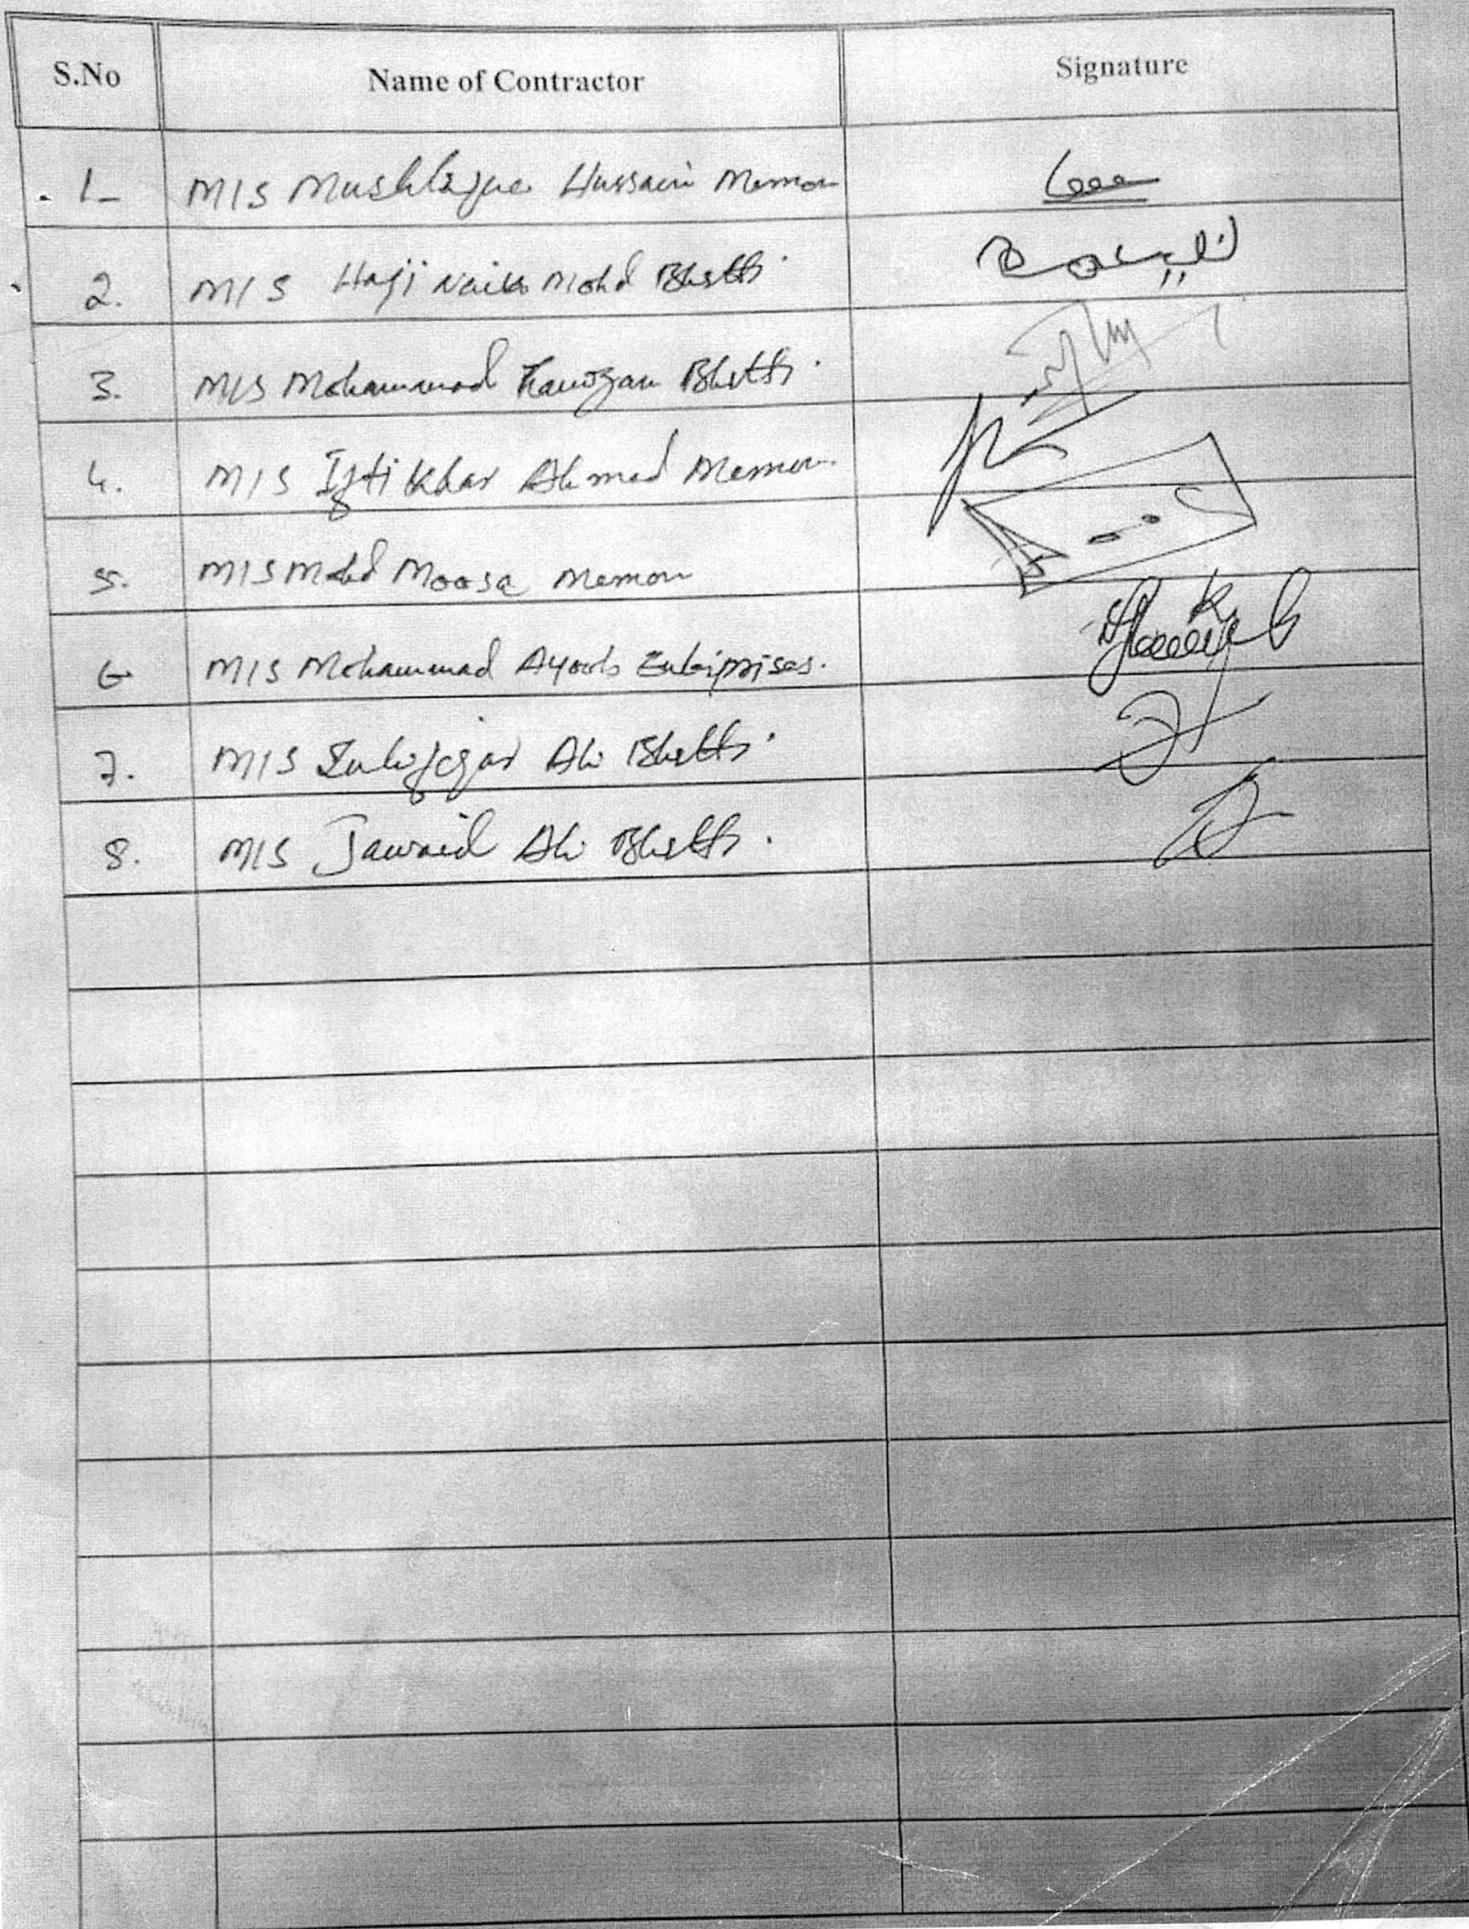 S.No Name of Contractor Signature
1- M/S Mushtaque Hussain Memon
2. M/S Haji Naik Mohd Bhatti
3. M/S Mohammad Bhatti.
4. M/S Iftikhar Ahmad Memon
5. M/S Mohd Moosa Memon
6 M/S Mohammad Ayoob Enterprises.
7. M/S Zulifqar Ali Bhatti
8. M/S Jawaid Ali Bhatti.